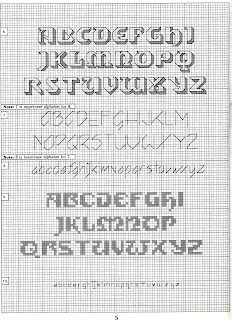 6
ABCDEFGHI
JKLMNOPQ
RSTUVWXYZ
Note: 5 is uppercase alphabet for 8.
7
ABCDEFGHIJKLM
NOPQRSTUVWXYZ
Note: 5 is lowercase alphabet for 7.
8
abcdefghijklmnopqrstuvwxyz
9
ABCDEFGHI
JKLMNOP
QRSTUVWXYZ
10
abcdefghijklmnopqrstuvwxyz
5